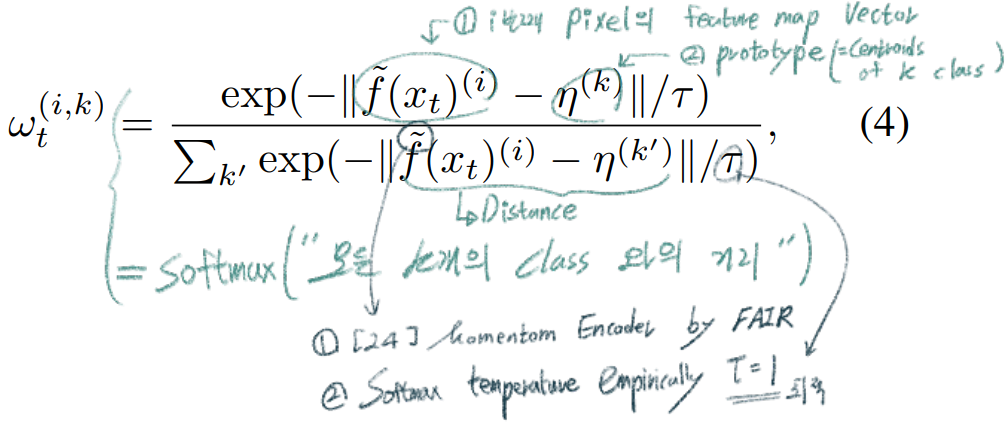 ① i번째 pixel의 feature map Vector
② prototype (=Centroids of k class)
ω_t^{(i,k)} = \frac{exp(-‖f̃(x_t)^{(i)} - η^{(k)}‖/τ)}{∑_{k'} exp(-‖f̃(x_t)^{(i)} - η^{(k')}‖/τ)}, (4)
↳Distance
= Softmax("모든 k개의 class 와의 거리")
① [24] Momentom Encoder by FAIR
② Softmax temperature empirically τ=1